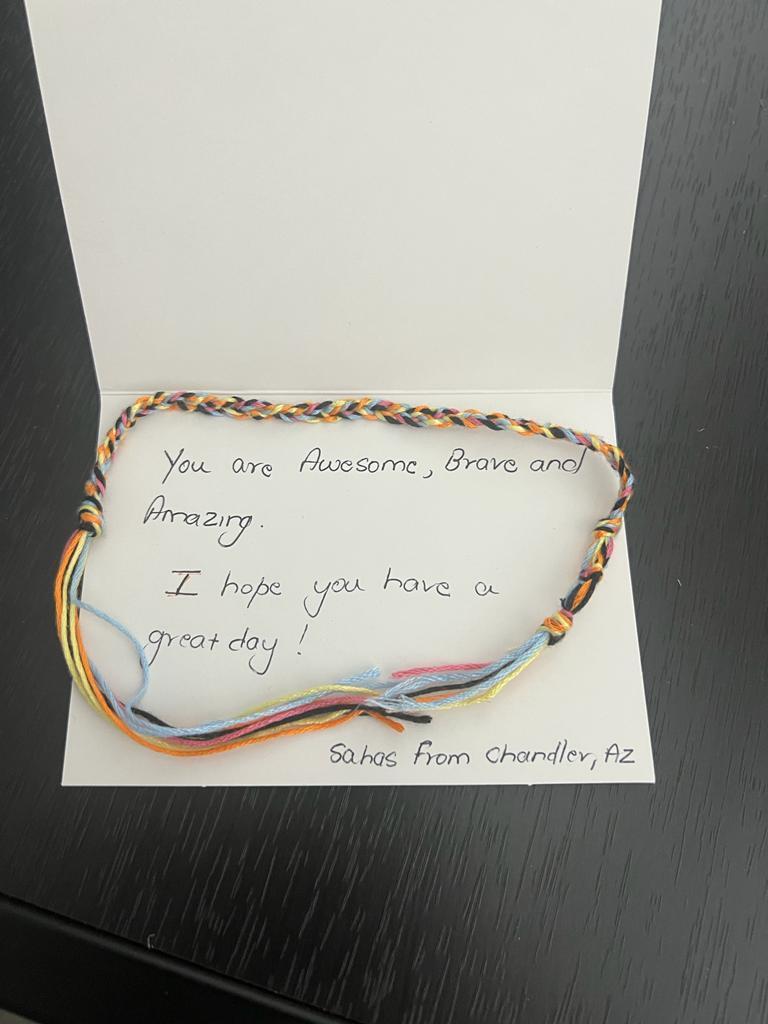 You are Awesome, Brave and
Amazing.
I hope you have a
great day !
Sahas from Chandler, AZ